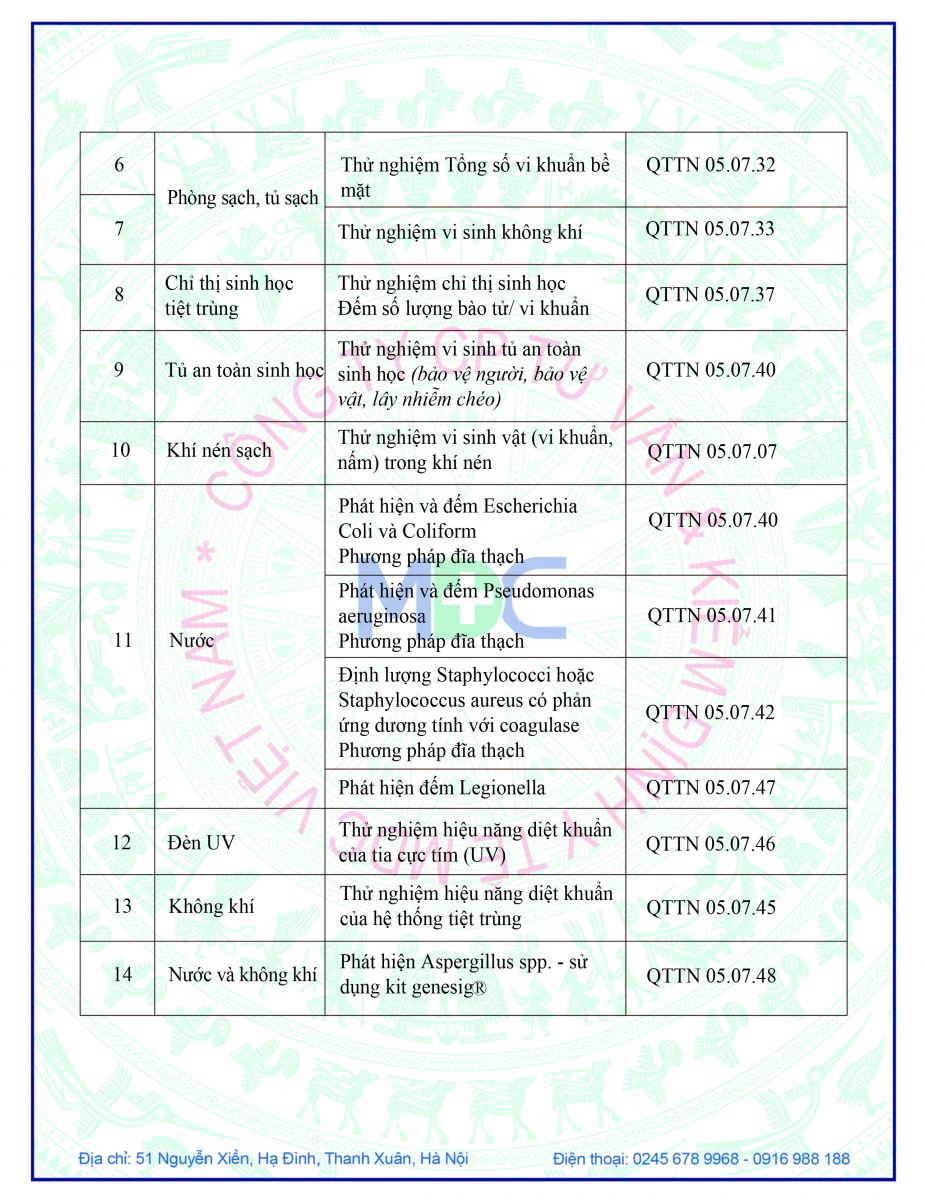 6
Phòng sạch, tủ sạch
Thử nghiệm Tổng số vi khuẩn bề
mặt
QTTN 05.07.32
7
Thử nghiệm vi sinh không khí
QTTN 05.07.33
8
Chỉ thị sinh học
tiệt trùng
Thử nghiệm chỉ thị sinh học
Đếm số lượng bào tử/ vi khuẩn
QTTN 05.07.37
9
Tủ an toàn sinh học
Thử nghiệm vi sinh tủ an toàn
sinh học (bảo vệ người, bảo vệ
vật, lây nhiễm chéo)
QTTN 05.07.40
10
Khí nén sạch
Thử nghiệm vi sinh vật (vi khuẩn,
nấm) trong khí nén
QTTN 05.07.07
11
Nước
Phát hiện và đếm Escherichia
Coli và Coliform
Phương pháp đĩa thạch
QTTN 05.07.40
Phát hiện và đếm Pseudomonas
aeruginosa
Phương pháp đĩa thạch
QTTN 05.07.41
Định lượng Staphylococci hoặc
Staphylococcus aureus có phản
ứng dương tính với coagulase
Phương pháp đĩa thạch
QTTN 05.07.42
Phát hiện đếm Legionella
QTTN 05.07.47
12
Đèn UV
Thử nghiệm hiệu năng diệt khuẩn
của tia cực tím (UV)
QTTN 05.07.46
13
Không khí
Thử nghiệm hiệu năng diệt khuẩn
của hệ thống tiệt trùng
QTTN 05.07.45
14
Nước và không khí
Phát hiện Aspergillus spp. - sử
dụng kit genesig®
QTTN 05.07.48
CÔNG TY CP TƯ VẤN & KIỂM ĐỊNH Y TẾ MDC VIỆT NAM *
MDC
Địa chỉ: 51 Nguyễn Xiển, Hạ Đình, Thanh Xuân, Hà Nội
Điện thoại: 0245 678 9968 - 0916 988 188